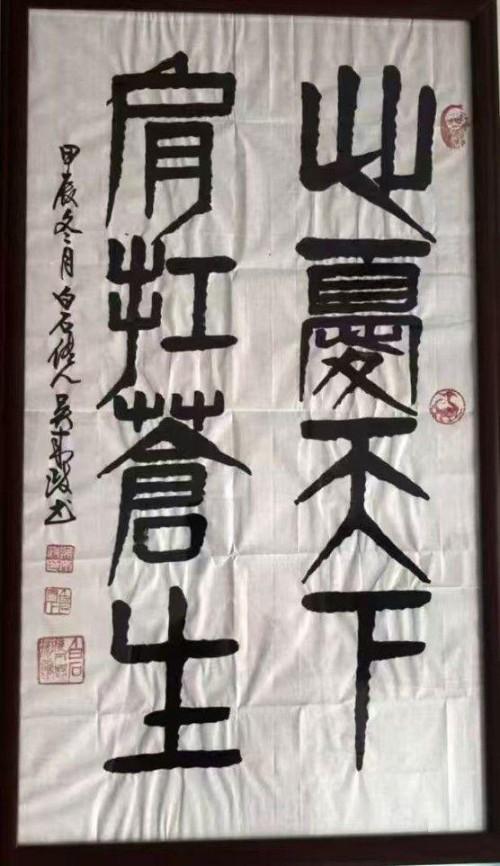 心憂天下
肩扛蒼生
甲辰冬月白石传人吴书
白石